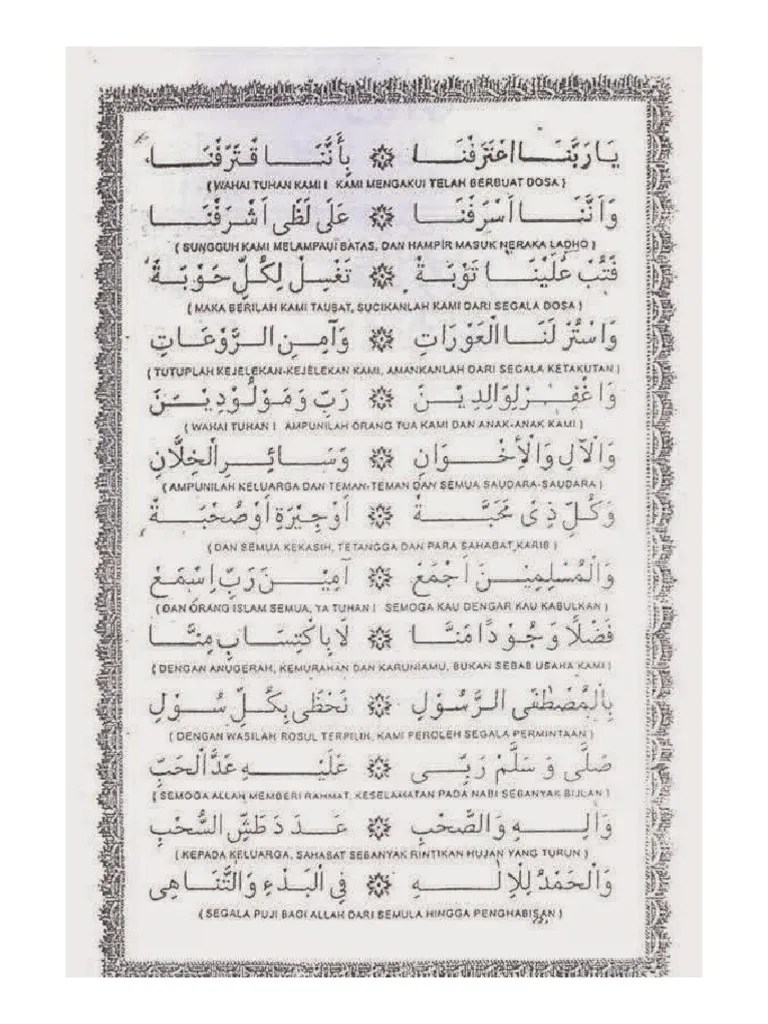 يَا رَبَّنَا اعْتَرَفْنَا ۞ بِأَنَّنَا قْتَرَفْنَا،
(WAHAI TUHAN KAMI ! KAMI MENGAKUI TELAH BERBUAT DOSA)
وَاَنَّنَا اَسْرَفْنَا ۞ عَلَى لَظَى اَشْرَفْنَا
( SUNGGUH KAMI MELAMPAUI BATAS, DAN HAMPIR MASUK NERAKA LADHO )
فَتُبْ عَلَيْنَا تَوْبَةً ۞ تَغْسِلْ لِكُلِّ حَوْبَةً
( MAKA BERILAH KAMI TAUBAT, SUCIKANLAH KAMI DARI SEGALA DOSA )
وَاسْتُرْ لَنَا الْعَوْرَاتِ ۞ وَآمِنِ الرَّوْعَاتِ
(TUTUPLAH KEJELEKAN-KEJELEKAN KAMI, AMANKANLAH DARI SEGALA KETAKUTAN)
وَاغْفِرْ لِوَالِدِيْنَ ۞ رَبِّ وَمَوْلُوْدِيْنَ
( WAHAI TUHAN ! AMPUNILAH ORANG TUA KAMI DAN ANAK-ANAK KAMI )
وَالْاٰلِ وَالْاِخْوَانِ ۞ وَسَائِرِ الْخِلَّانِ
(AMPUNILAH KELUARGA DAN TEMAN-TEMAN DAN SEMUA SAUDARA-SAUDARA )
وَكُلِّ ذِىْ مَحَبَّةٍ ۞ اَوْ جِيْرَةٍ اَوْ صُحْبَةٍ
(DAN SEMUA KEKASIH, TETANGGA DAN PARA SAHABAT KARIB )
وَالْمُسْلِمِيْنَ اَجْمَعْ ۞ آمِيْنَ رَبِّ اِسْمَعْ
(DAN ORANG ISLAM SEMUA, YA TUHAN ! SEMOGA KAU DENGAR KAU KABULKAN )
فَضْلًا وَجُوْدًا مَنَّا ۞ لَا بِاكْتِسَابٍ مِنَّا
( DENGAN ANUGERAH, KEMURAHAN DAN KARUNIAMU, BUKAN SEBAB USAHA KAMI )
بِالْمُصْطَفَى الرَّسُوْلِ ۞ نَحْظَى بِكُلِّ سُوْلِ
( DENGAN WASILAH ROSUL TERPILIH, KAMI PEROLEH SEGALA PERMINTAAN )
صَلَّى وَسَلَّمْ رَبِّى ۞ عَلَيْهِ عَدَّ الْحَبِّ
( SEMOGA ALLAH MEMBERI RAHMAT, KESELAMATAN PADA NABI SEBANYAK BIJIAN )
وَاٰلِهِ وَالصَّحْبِ ۞ عَدَدَ طَشِّ السُّحْبِ
( KEPADA KELUARGA, SAHABAT SEBANYAK RINTIKAN HUJAN YANG TURUN )
وَالْحَمْدُ لِلْاِلٰهِ ۞ فِى الْبَدْءِ وَالتَّنَاهِى
(SEGALA PUJI BAGI ALLAH DARI SEMULA HINGGA PENGHABISAN )